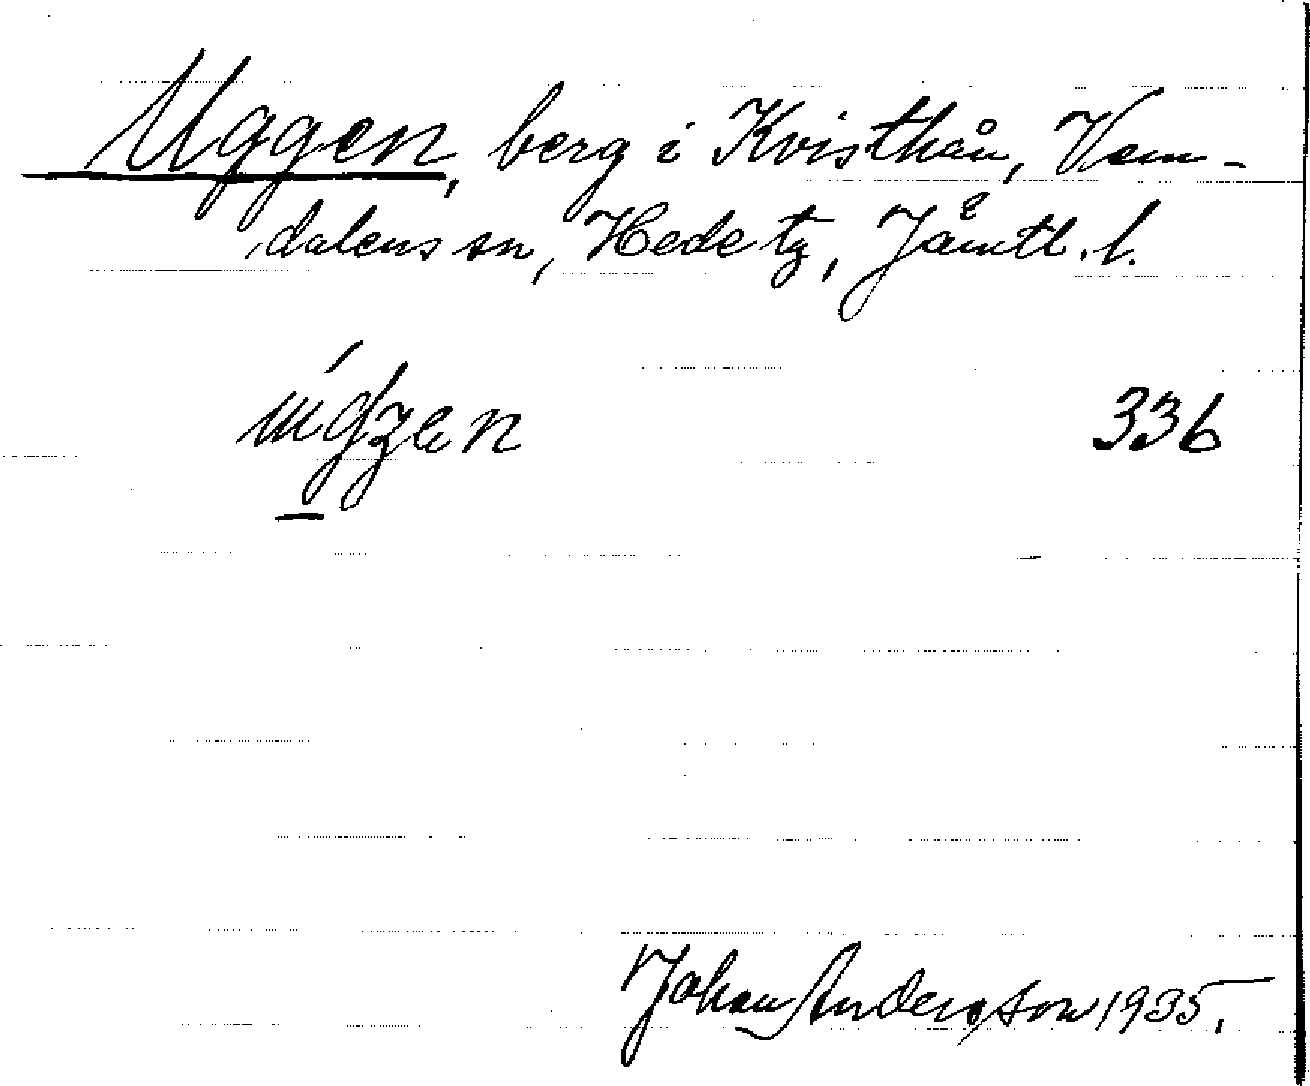 Uggen, berg i Kvisthån, Vem-
dalens sn, Hede tg, Jämtl. l.
336
Johan Anderson 1935.